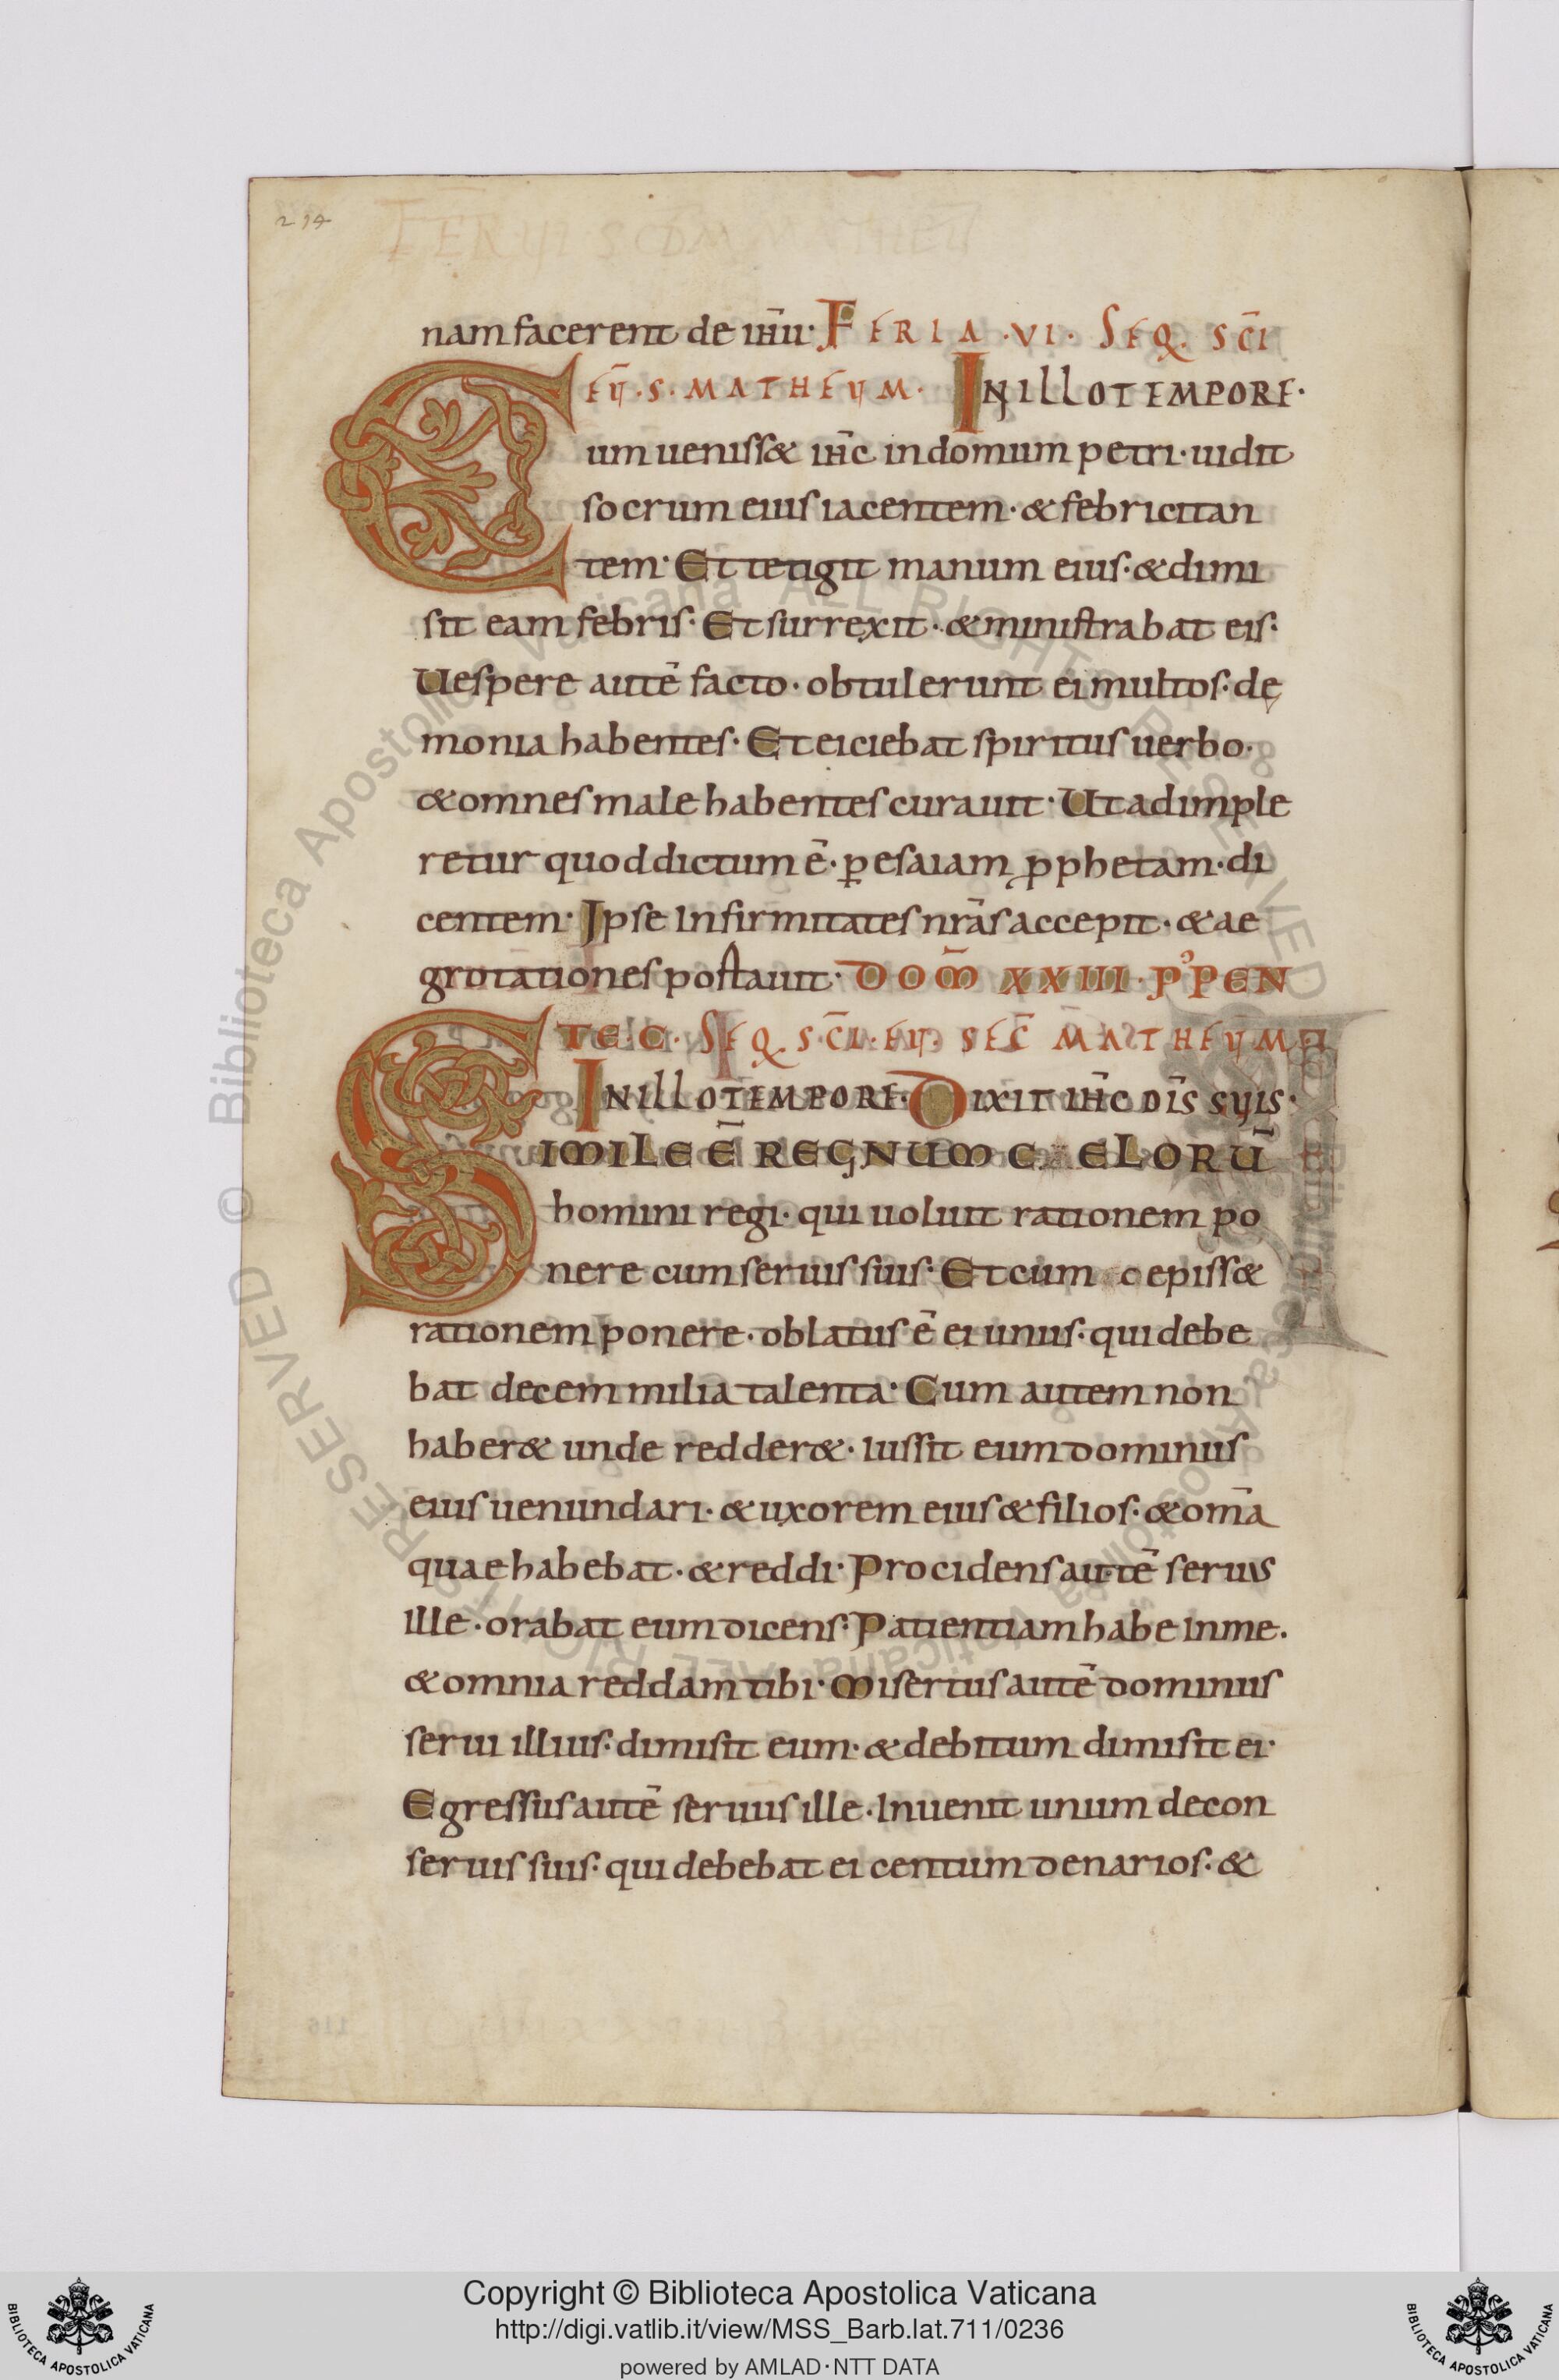 294
FER VI SCDM MATHEU
nam facerent de ihu̅· FERIA ·VI· SEQ. SC̅I
EV̅·S·MATHEVM· IN ILLO TEMPORE·
Cum uenisset ih̅c in domum petri· uidit
socrum eius iacentem· & febricitan
tem· Et tetigit manum eius· & dimi
sit eam febris· Et surrexit· & ministrabat eis·
Uespere aute̅ facto· obtulerunt ei multos· dę
monia habentes· Et eiciebat spiritus uerbo·
& omnes male habentes curauit· Ut adimple
retur quod dictum e̅· ꝑ esaiam ꝓphetam· di
centem· Ipse Infirmitates nr̅as accepit· & ae
grotationes postauit· DOM̅ XXIII· P' PEN
TEC· SEQ. SC̅I·EV̅· SEC̅ MATHEVM
IN ILLO TEMPORE· DIXIT IH̅C DI̅S SVIS·
SIMILE E̅ REGNUM CAELORU̅
homini regi· qui uoluit rationem po
nere cum seruis suis· Et cum cepiss&
rationem ponere· oblatus e̅ ei unus· qui debe
bat decem milia talenta· Cum autem non
haber& unde redder&· iussit eum dominus
eius uenundari· & uxorem eius & filios· & om̅a
quae habebat· & reddi· Procidens aute̅ seruus
ille· orabat eum dicens· Patientiam habe In me·
& omnia reddam tibi· Misertus aute̅ dominus
serui illius· dimisit eum· & debitum dimisit ei·
Egressus aute̅ seruus ille· Inuenit unum de con
seruis suis· qui debebat ei centum denarios· &
© Biblioteca Apostolica Vaticana ALL RIGHTS RESERVED
Copyright © Biblioteca Apostolica Vaticana
http://digi.vatlib.it/view/MSS_Barb.lat.711/0236
powered by AMLAD·NTT DATA
BIBLIOTECA APOSTOLICA VATICANA
BIBLIOTECA APOSTOLICA VATICANA